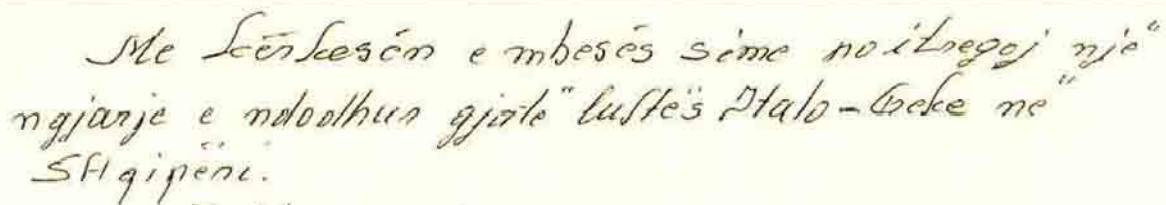 Me kërkesën e mbesës sime po i tregoj një
ngjarje e ndodhur gjatë luftës Italo-Greke në
SHqipëni.